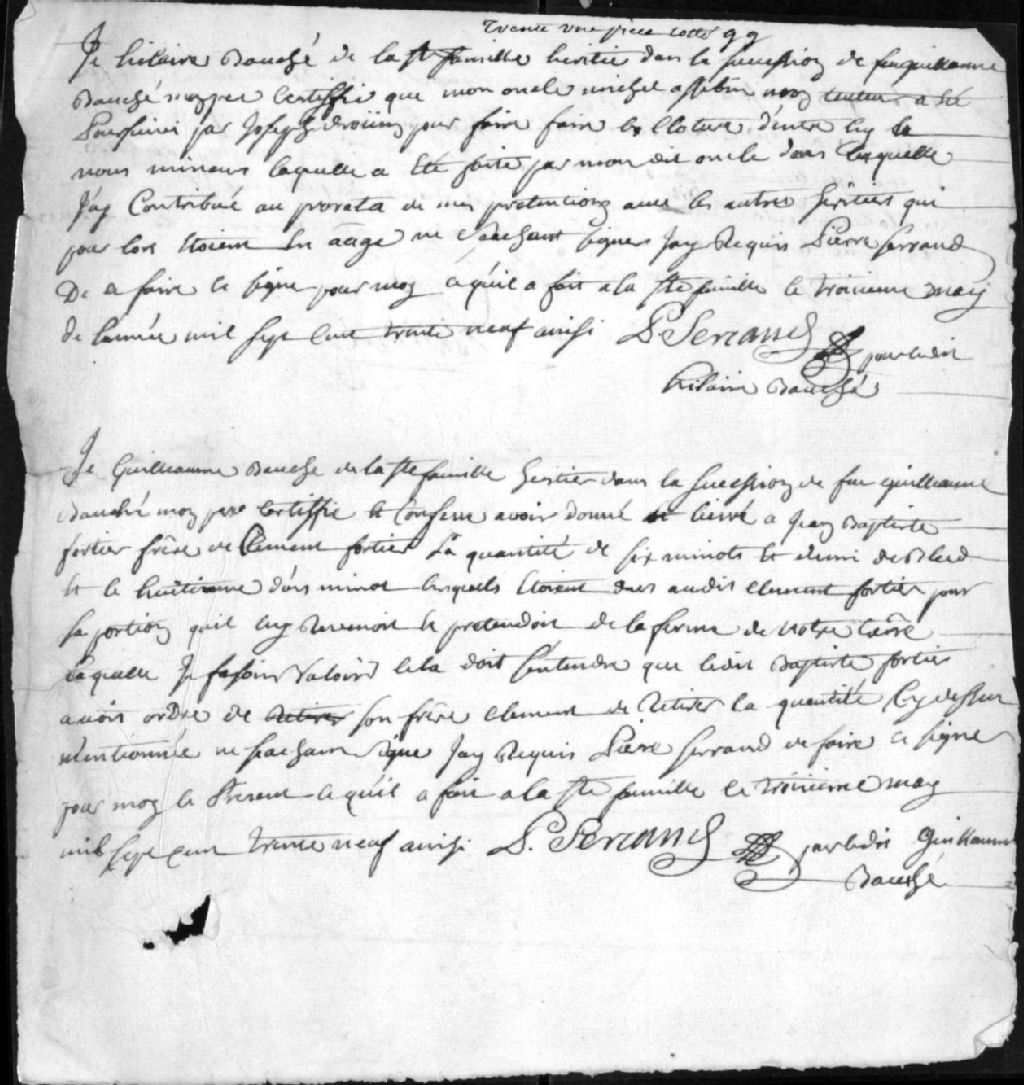 trente une piece cotté 99
Je hilaire Bauché de la ste famille heritié dans la succession de feu guilleaume
Bauché mon per Certiffie que mon oncle michel asselin nôtre tuteur a été
Poursuivi par Joseph drouin pour faire faire la cloture d'entre luy &
nous mineurs laquelle a Eté faite par mon dit oncle dans laquelle
J'ay Contribué au prorata de mes pretentions avec les autres heritiers qui
pour lors Etoient En aage ne sachant signer Jay Requis Pierre Serrand
De ce faire le signe pour moy ce qu'il a fait a la Ste famille le troisieme may
de lannée mil sept Cent trente neuf ainsi P. Serrand pour ledit
hilaire Bauché
Je Guilleaume Bauché de la Ste famille heritier dans la succession de feu guilleaume
Bauché mon pere Certiffie et Confesse avoir donné et livré a Jean Baptiste
fortier frêre de Clement fortier La quantité de six minots et demi de Bled
et le huitieme d'un minot lesquels Etoient dues audit clement fortier pour
sa portion qu'il luy Revenoit et pretendoit de la ferme de notre terre
laquelle Je faisois valoir cela doit s'entendre que ledit Baptiste fortier
avoit ordre de retirer son frêre clement de Retirer la quantité Cy dessus
mentionnée ne sachant signe Jay Requis Piere Serrand de faire le signe
pour moy le Present ce qu'il a fait a la Ste famille le troisieme may
mil sept cent trente neuf ainsi P. Serrand pour ledit Guilleaume
Bauché